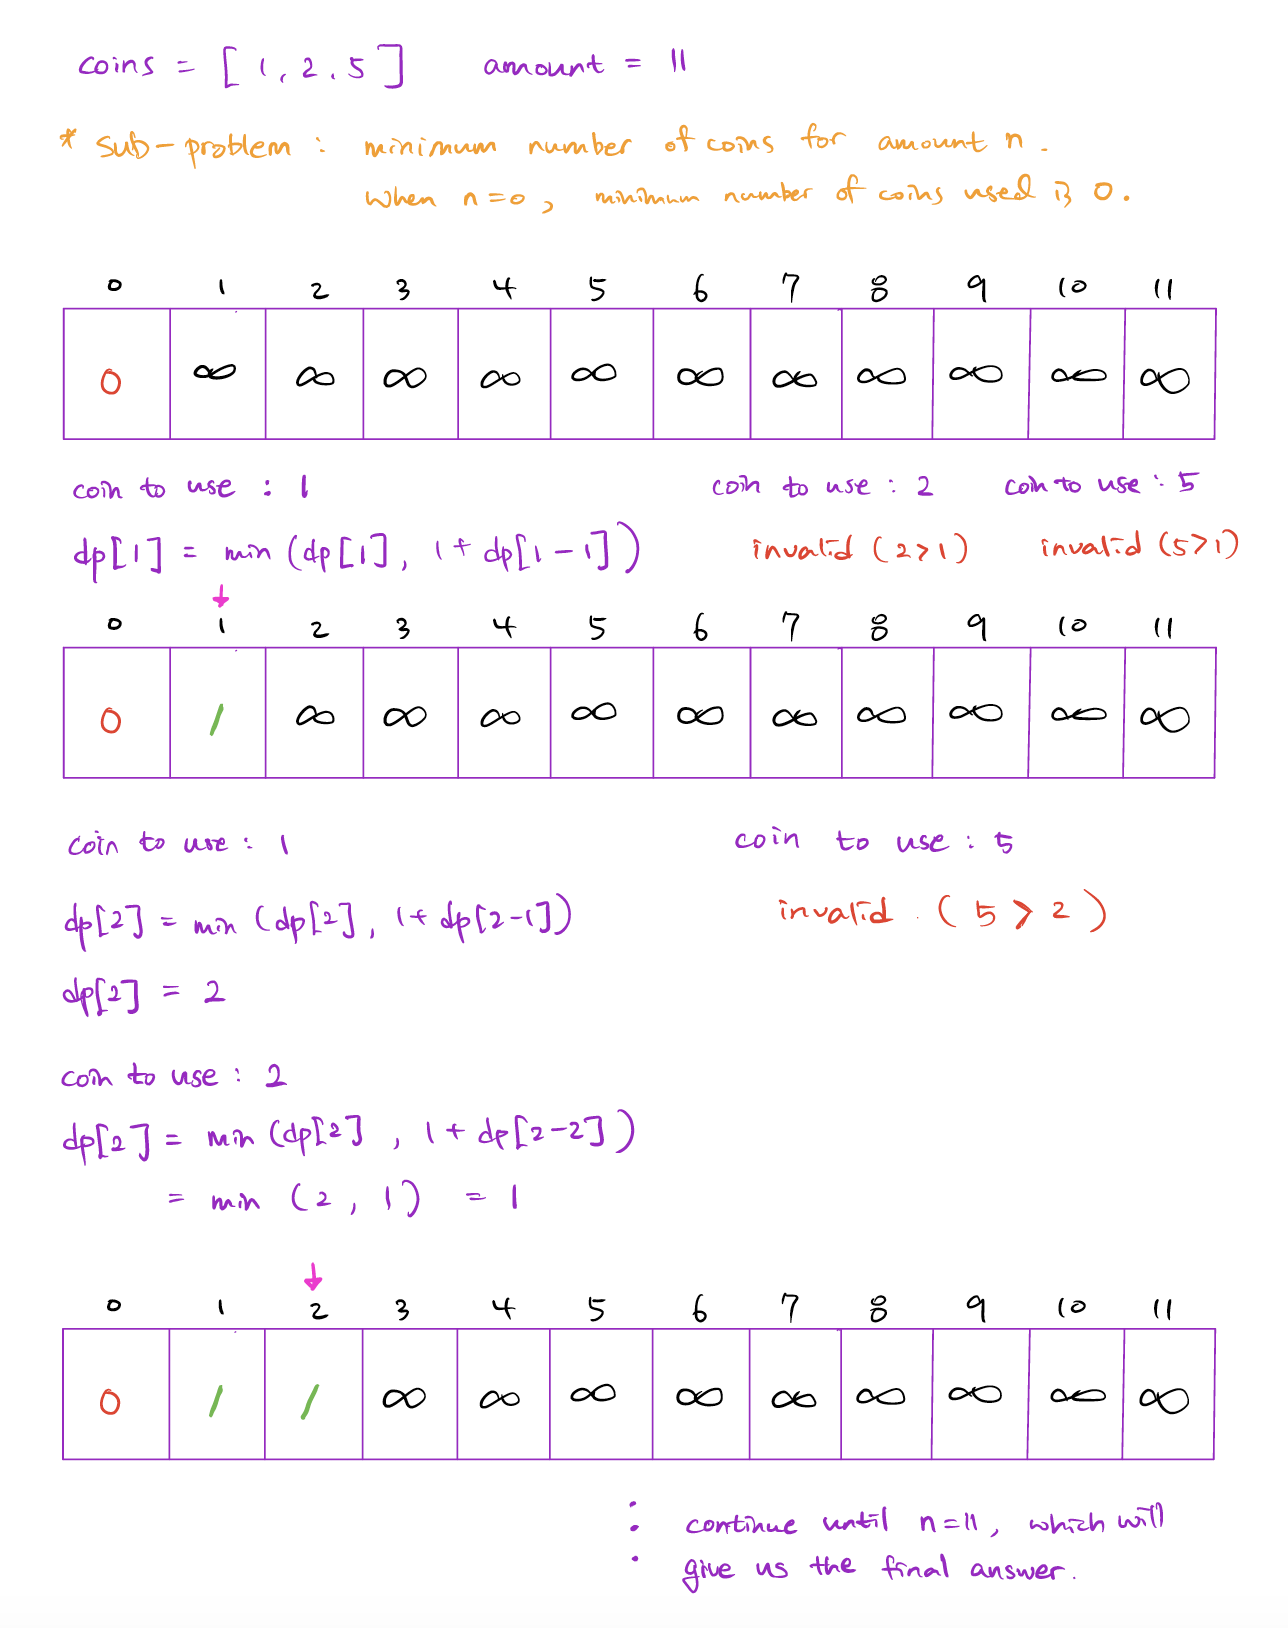 coins = [1, 2, 5] amount = 11
* sub-problem : minimum number of coins for amount n.
when n=0, minimum number of coins used is 0.
0 1 2 3 4 5 6 7 8 9 10 11
0 ∞ ∞ ∞ ∞ ∞ ∞ ∞ ∞ ∞ ∞ ∞
coin to use : 1 coin to use : 2 coin to use : 5
dp[1] = min (dp[1], 1+ dp[1-1]) invalid (2>1) invalid (5>1)
↓
0 1 2 3 4 5 6 7 8 9 10 11
0 1 ∞ ∞ ∞ ∞ ∞ ∞ ∞ ∞ ∞ ∞
coin to use : 1 coin to use : 5
dp[2] = min (dp[2], 1+ dp[2-1]) invalid. (5 > 2)
dp[2] = 2
coin to use : 2
dp[2] = min (dp[2] , 1 + dp[2-2])
= min (2, 1) = 1
↓
0 1 2 3 4 5 6 7 8 9 10 11
0 1 1 ∞ ∞ ∞ ∞ ∞ ∞ ∞ ∞ ∞
⋮ continue until n=11, which will
give us the final answer.